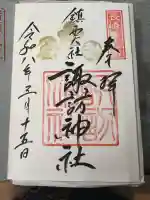 長崎
奉拝
鎮西大社
諏訪神社
令和八年三月十五日